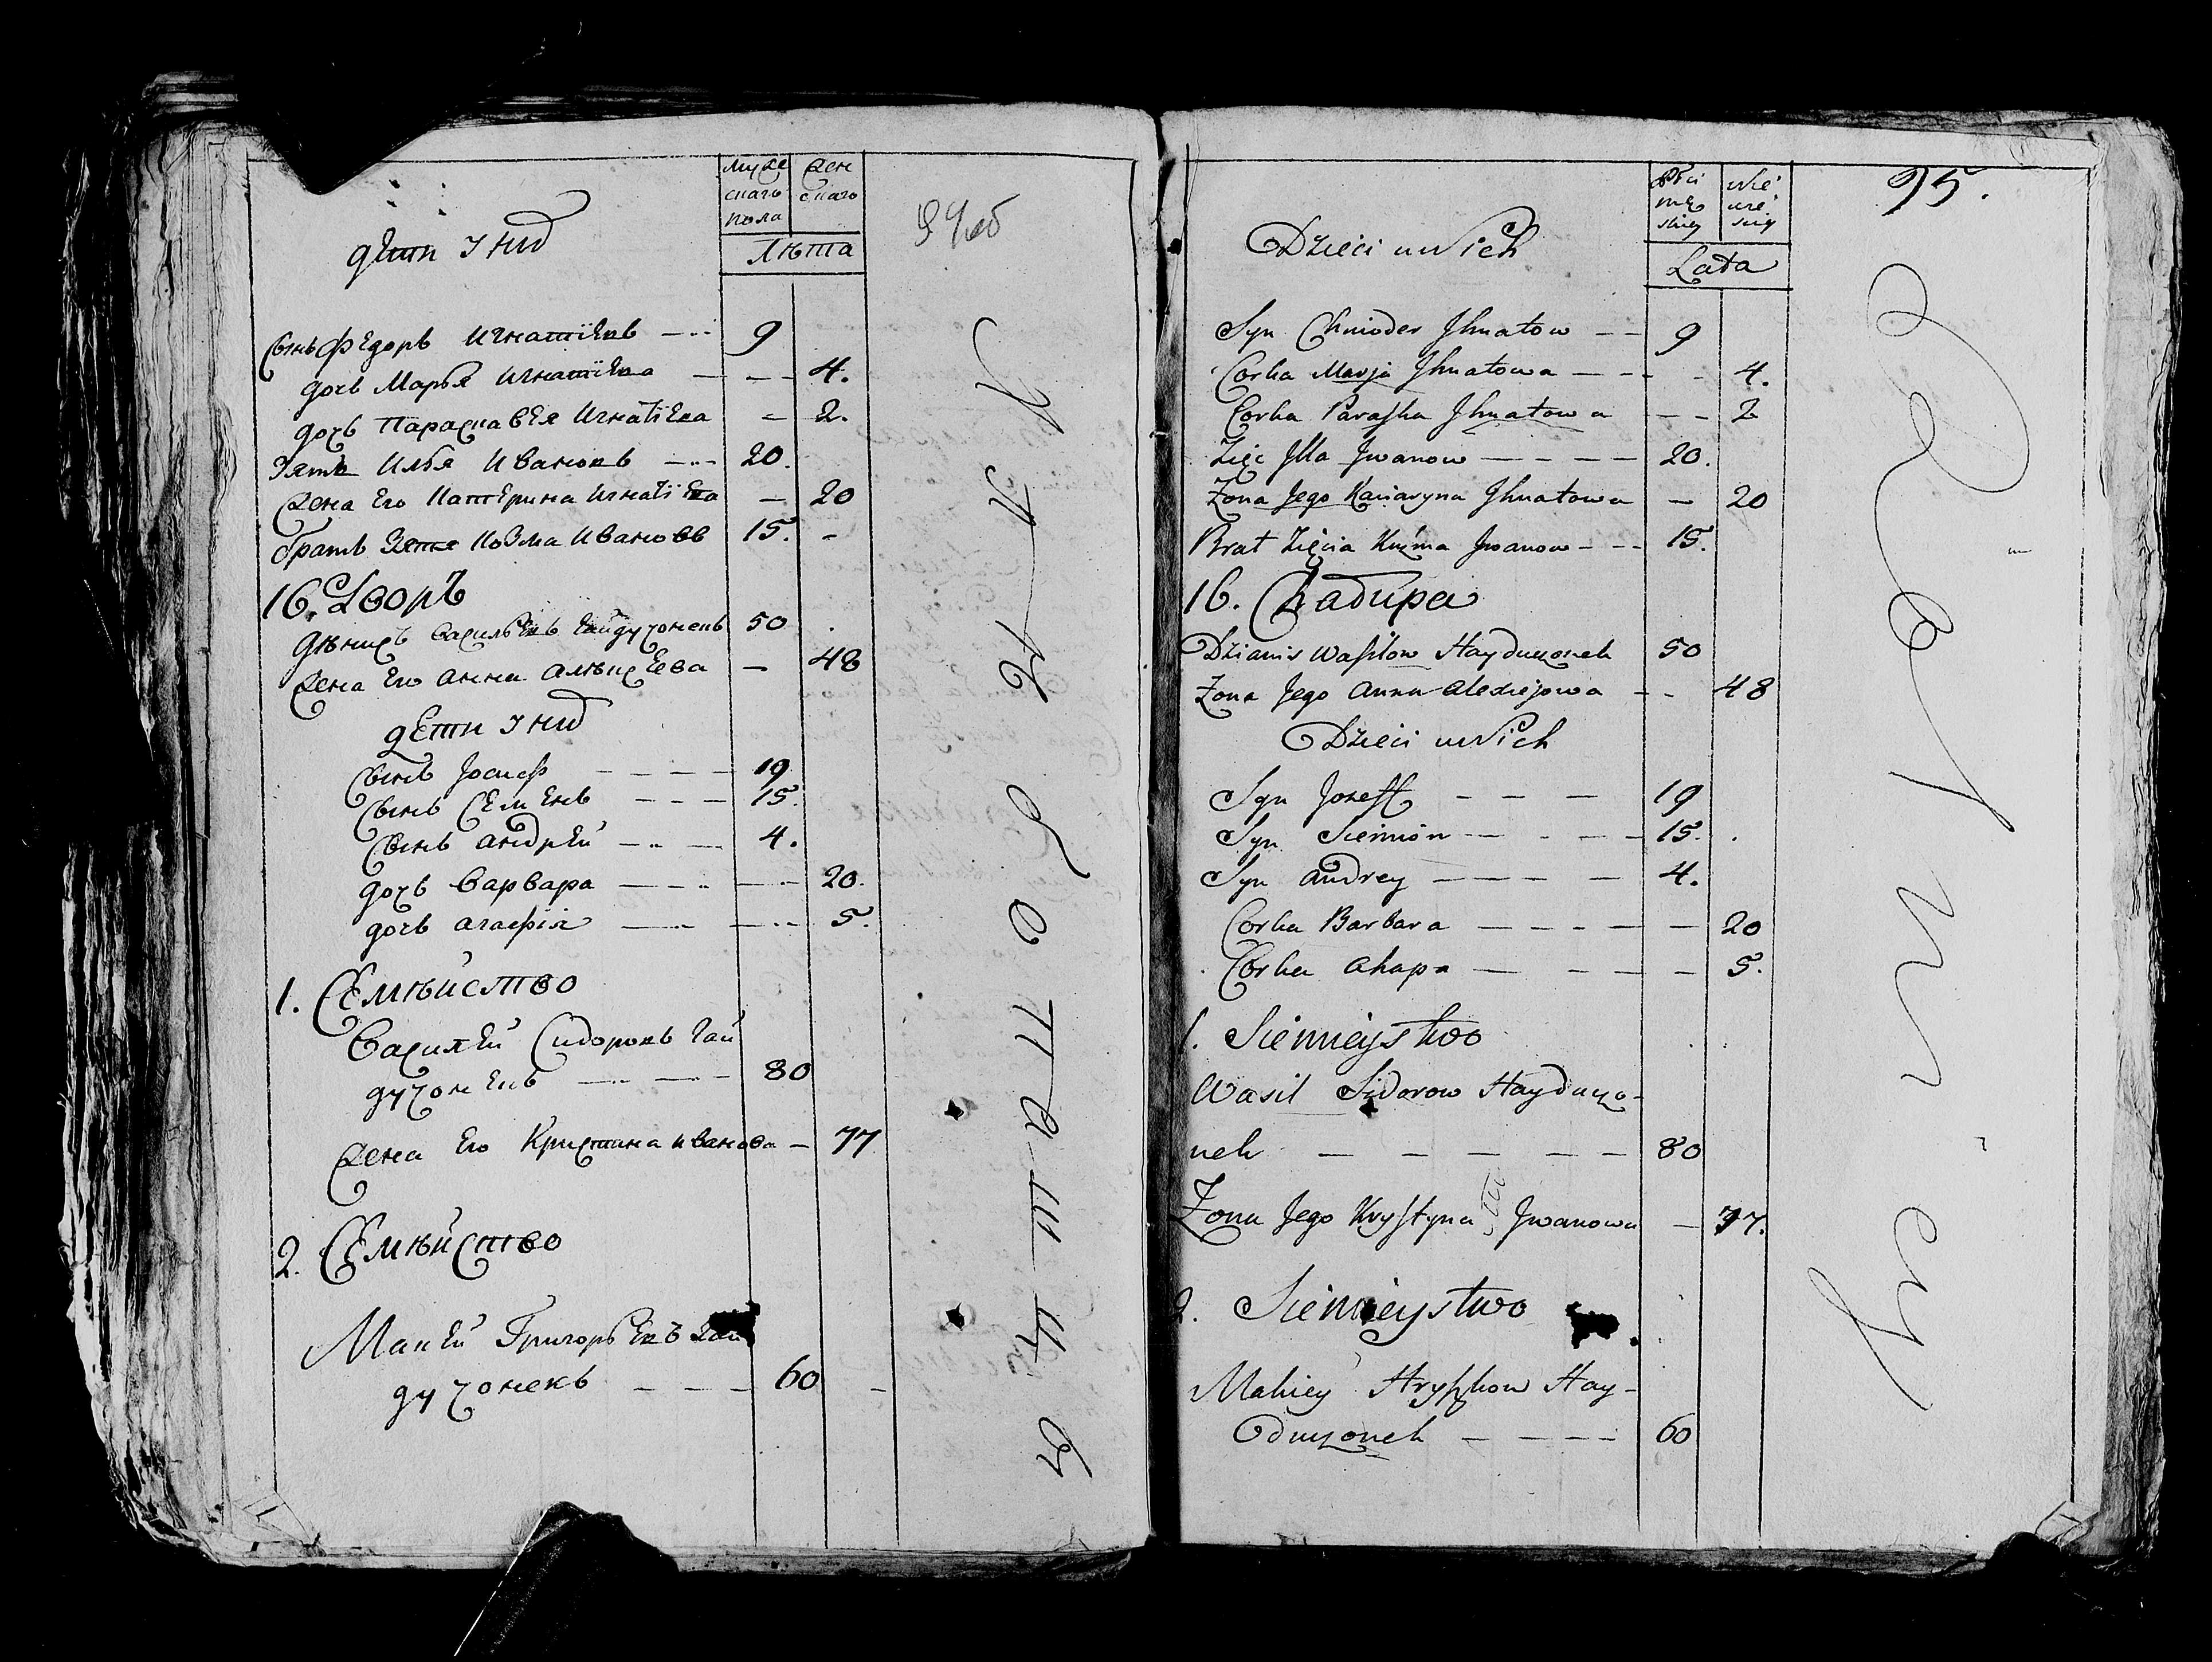 дети у них
Муже
скаго
пола
жен
скаго
Лѣта
94 об
сынъ Федоръ Игнатіевъ 9
дочь Марья Игнатіева 4.
дочь Параскавея Игнатіева 2.
зять Илья Ивановъ 20.
жена его Катерина Игнатіева 20
братъ зятя Козма Ивановъ 15.
16. Дворъ
Дѣнисъ Васильевъ Гайдучонекъ 50
жена его Анна Алѣксеева 48
дети у них
сынъ Іосиф 19
сынъ Семенъ 15.
сынъ Андрей 4.
дочь Варвара 20.
дочь Агафія 5.
1. Семѣйство
Василей Сидоровъ Гай
дучонекъ 80
жена его Кристина Иванова 77
2. Семѣйство
Макей Григорьевъ Гай
дучонекъ 60
95.
Dzieci u Nich
Płci
męz
skiey
Lata
Syn Chwioder Ihnatow 9
Corka Marja Ihnatowa 4.
Corka Paraska Ihnatowa 2
Zięc Illa Iwanow 20.
Zona Jego Kaciaryna Ihnatowa 20
Brat Zięcia Kuźma Iwanow 15.
16. Chadupa
Dzianis Wasilow Hayduczonek 50
Zona Jego Anna Alexiejowa 48
Dzieci u Nich
Syn Joseff 19
Syn Siemión 15.
Syn Andrey 4.
Corka Barbara 20
Corka Ahapa 5.
1. Siemieystwo
Wasil Sidorow Hayduczo-
nek 80
Zona Jego Krystyna Iwanowa 77.
2. Siemieystwo
Makiey Hryszkow Hay-
duczonek 60